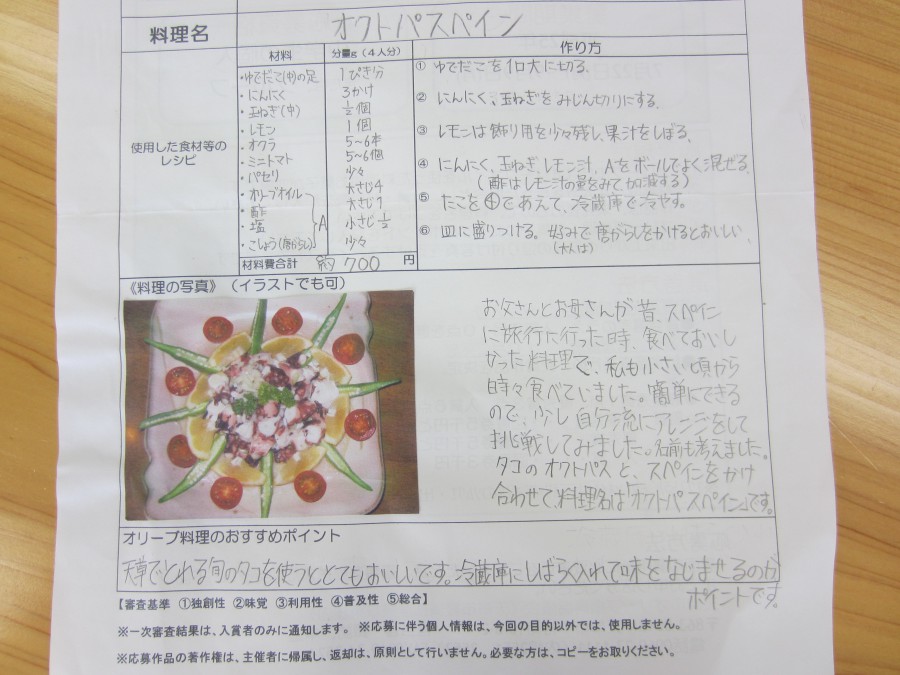 料理名 オクトパスペイン
使用した食材等の
レシピ
材料 分量g(4人分) 作り方
・ゆでだこ(中)の足 1ぴき分
・にんにく 3かけ
・玉ねぎ(中) 1/2個
・レモン 1個
・オクラ 5~6本
・ミニトマト 5~6個
・パセリ 少々
・オリーブオイル 大さじ4
・酢 大さじ1
・塩 小さじ1/2
・こしょう(唐がらし) 少々
A
材料費合計 約700円
① ゆでだこを1口大に切る。
② にんにく、玉ねぎをみじん切りにする。
③ レモンは飾り用を少々残し、果汁をしぼる。
④ にんにく、玉ねぎ、レモン汁、Aをボールでよく混ぜる。
(酢はレモン汁の量をみて加減する)
⑤ たこを④であえて、冷蔵庫で冷やす。
⑥ 皿に盛りつける。好みで唐がらしをかけるとおいしい。
(大人は)
《料理の写真》(イラストでも可)
お父さんとお母さんが昔、スペイン
に旅行に行った時、食べておいし
かった料理で、私も小さい頃から
時々食べていました。簡単にできる
ので、少し自分流にアレンジをして
挑戦してみました。名前も考えました。
タコのオクトパスと、スペインをかけ
合わせて、料理名は「オクトパスペイン」です。
オリーブ料理のおすすめポイント
天草でとれる旬のタコを使うととてもおいしいです。冷蔵庫にしばらく入れて味をなじませるのが
ポイントです。
【審査基準 ①独創性 ②味覚 ③利用性 ④普及性 ⑤総合】
※一次審査結果は、入賞者のみに通知します。 ※応募に伴う個人情報は、今回の目的以外では、使用しません。
※応募作品の著作権は、主催者に帰属し、返却は、原則として行いません。必要な方は、コピーをお取りください。